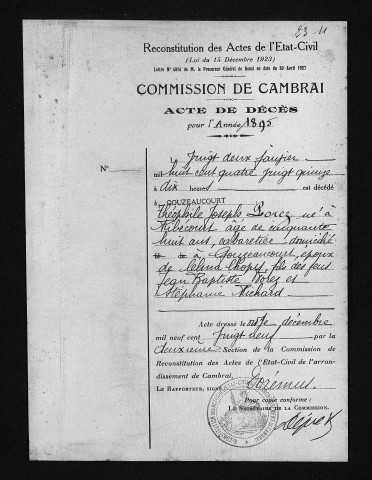 23 11
Reconstitution des Actes de l'Etat-Civil
(Loi du 15 Décembre 1923)
Lettre N° de M. le Procureur Général de Douai en date du 29 Avril 1927
COMMISSION DE CAMBRAI
ACTE DE DÉCÈS
pour l'Année 1895
N°
Le Vingt deux janvier
mil huit cent quatre vingt quinze
à dix heures est décédé
à GOUZEAUCOURT
Théophile Joseph Dorez né à
Ribécourt âgé de cinquante
huit ans, cabaretier domicilié
à Gouzeaucourt, époux
de Célina Chopy fils des feus
Jean Baptiste Dorez et
Stéphanie Richard
Acte dressé le décembre
mil neuf cent vingt neuf par la
deuxième Section de la Commission de
Reconstitution des Actes de l'Etat-Civil de l'arron-
dissement de Cambrai,
LE RAPPORTEUR, SIGNÉ
Pour copie conforme :
LE SECRÉTAIRE DE LA COMMISSION,